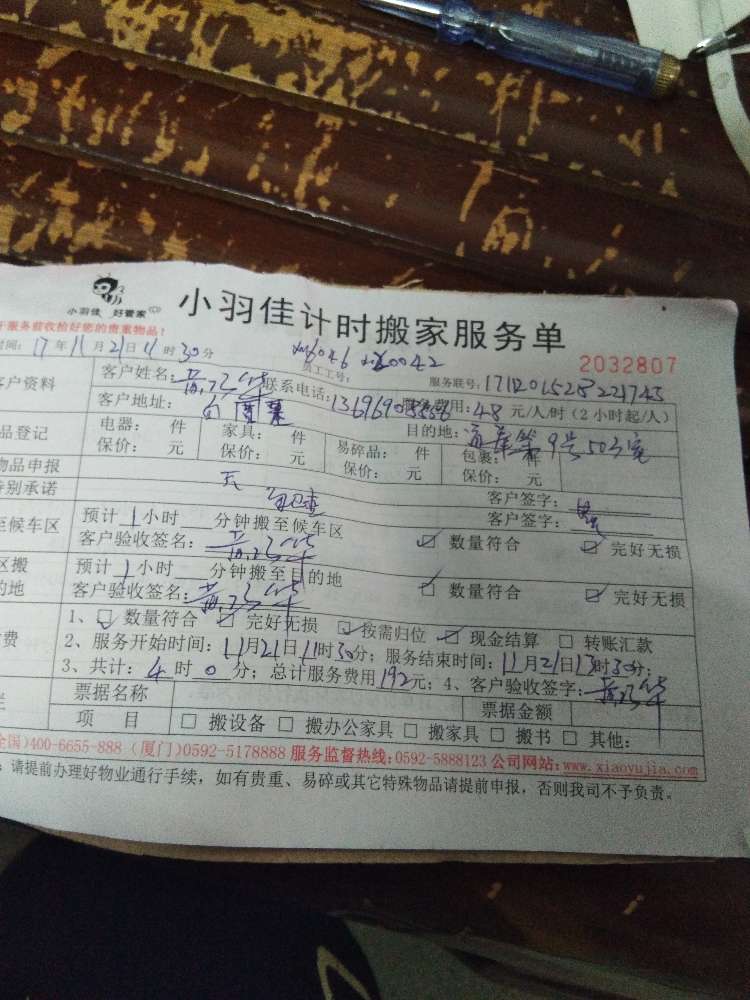 小羽佳 好管家
小羽佳计时搬家服务单
于服务前收拾好您的贵重物品!
2032807
时间: 17年11月21日11时30分
员工工号:
服务联号:
客户资料
客户姓名:
联系电话:
服务费用: 48 元/人/时 (2小时起/人)
客户地址:
目的地: 9号
品登记
电器: 件 保价: 元
家具: 件 保价: 元
易碎品: 件 保价: 元
包裹: 件 保价: 元
物品申报
无
客户签字:
特别承诺
客户签字:
至候车区
预计1小时 分钟搬至候车区
客户验收签名:
☑ 数量符合 ☑ 完好无损
区搬
的地
预计1小时 分钟搬至目的地
客户验收签名:
☑ 数量符合 ☑ 完好无损
费
1、☑ 数量符合 ☑ 完好无损 ☑ 按需归位 ☑ 现金结算 □ 转账汇款
2、服务开始时间: 11月21日11时30分; 服务结束时间: 11月21日13时30分;
3、共计: 4时0分; 总计服务费用192元; 4、客户验收签字:
票据名称 票据金额
项 目 □ 搬设备 □ 搬办公家具 □ 搬家具 □ 搬书 □ 其他:
全国)400-6655-888 (厦门)0592-5178888 服务监督热线:0592-5888123 公司网站:www.xiaoyujia.com
: 请提前办理好物业通行手续, 如有贵重、易碎或其它特殊物品请提前申报, 否则我司不予负责。